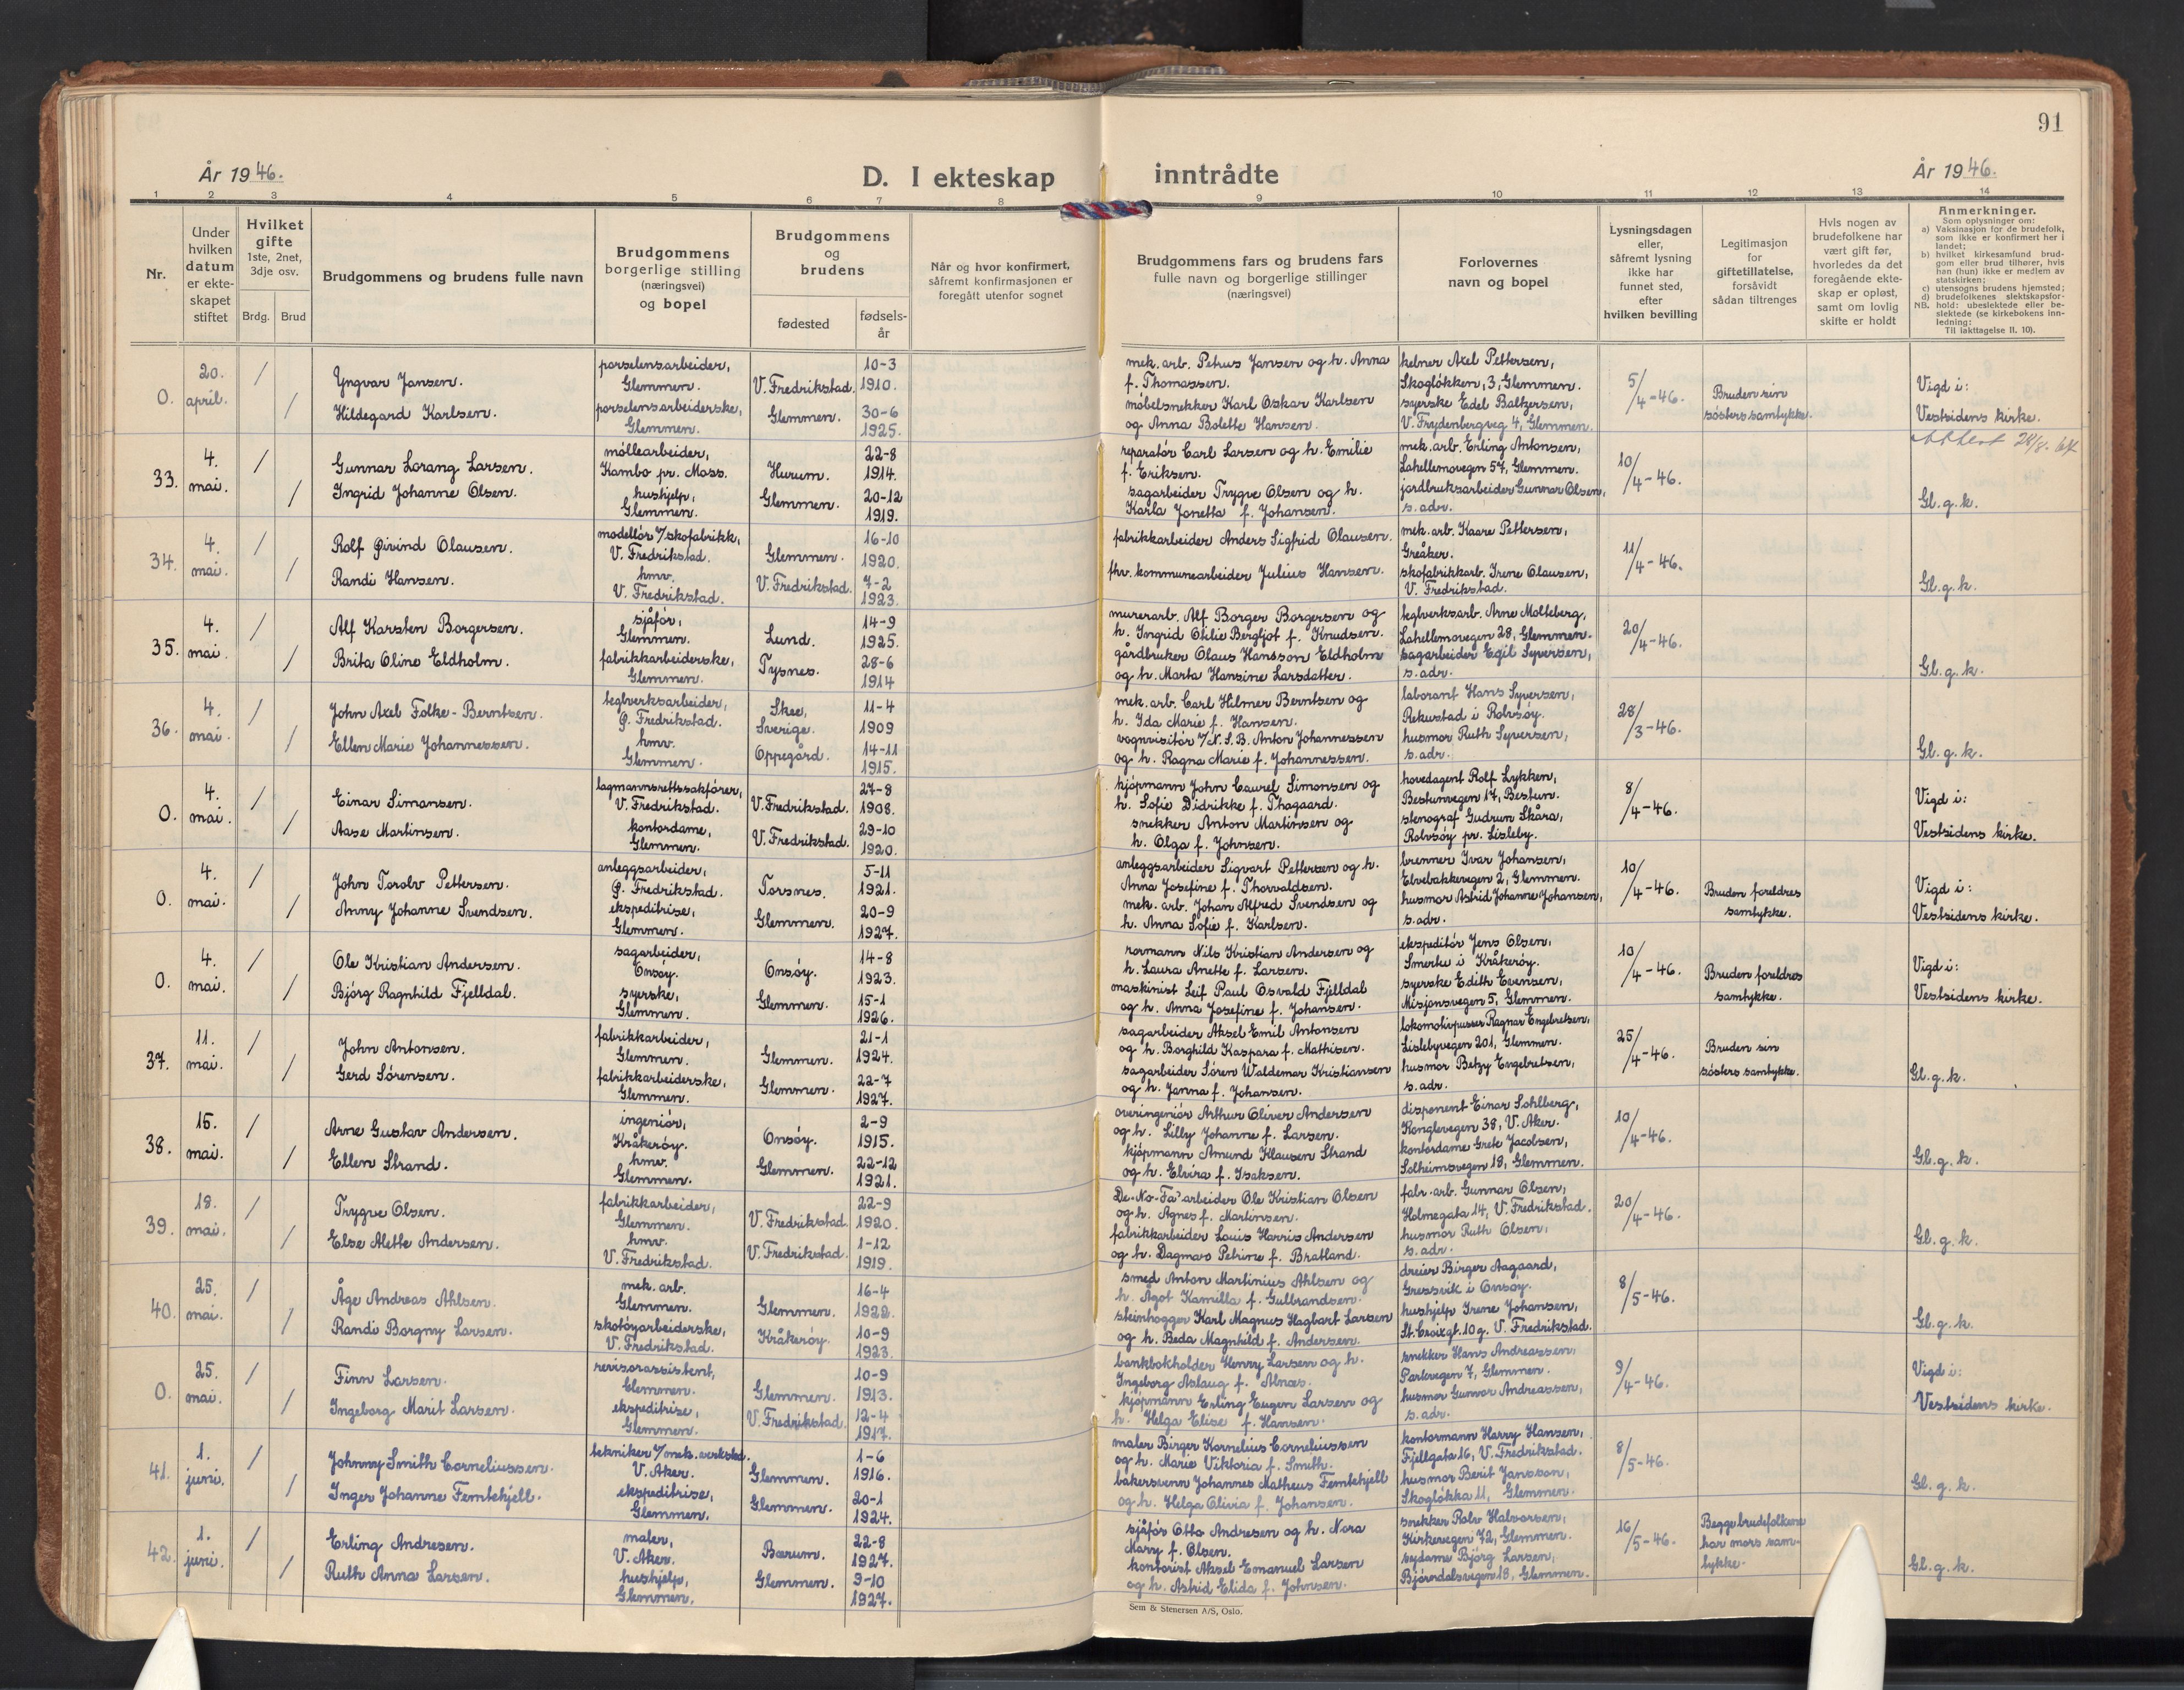 91
År 1946.
D. I ekteskap inntrådte
År 1946.
1 2 3 4 5 6 7 8 9 10 11 12 13 14
Nr.
Under hvilken datum er ekteskapet stiftet
Hvilket gifte 1ste, 2net, 3dje osv.
Brdg. Brud
Brudgommens og brudens fulle navn
Brudgommens borgerlige stilling (næringsvei) og bopel
Brudgommens og brudens
fødested
fødselsår
Når og hvor konfirmert, såfremt konfirmasjonen er foregått utenfor sognet
Brudgommens fars og brudens fars fulle navn og borgerlige stillinger (næringsvei)
Forlovernes navn og bopel
Lysningsdagen eller, såfremt lysning ikke har funnet sted, efter hvilken bevilling
Legitimasjon for giftetillatelse, forsåvidt sådan tiltrenges
Hvis nogen av brudefolkene har vært gift før, hvorledes da det foregående ekteskap er opløst, samt om lovlig skifte er holdt
Anmerkninger.
Som oplysninger om:
a) Vaksinasjon for de brudefolk, som ikke er konfirmert her i landet;
b) hvilket kirkesamfund brudgom eller brud tilhører, hvis han (hun) ikke er medlem av statskirken;
c) utensogns brudens hjemsted;
d) brudefolkenes slektskapsforhold: ubeslektede eller beslektede (se kirkebokens innledning:
NB. Til iakttagelse II. 10).
0. 20. april. / Yngvar Jansen. porselensarbeider, Glemmen. V. Fredrikstad. 10-3 1910. mek. arb. Petrus Jansen og h. Anna f. Thomassen. kelner Axel Pettersen, Skogløkken, 3, Glemmen. 5/4-46. Bruden sin søsters samtykke. Vigd i: Vestsidens kirke.
/ Hildegard Karlsen. porselensarbeiderske, Glemmen. Glemmen. 30-6 1925. møbelsnekker Karl Oskar Karlsen og Anna Bolette Hansen. syerske Edel Baltzersen, V. Frydenbergveg 4, Glemmen.
33. 4. mai. / Gunnar Lorang Larsen. møllearbeider, Kambo pr. Moss. Hurum. 22-8 1914. reparatør Carl Larsen og h. Emilie f. Eriksen. mek. arb. Erling Antonsen, Lahellemovegen 57, Glemmen. 10/4-46. 28/8. Gl. g. k.
/ Ingrid Johanne Olsen. hushjelp, Glemmen. Glemmen. 20-12 1919. sagarbeider Trygve Olsen og h. Karla Janetta f. Johansen. jordbruksarbeider Gunnar Olsen, s. adr.
34. 4. mai. / Rolf Øivind Olausen. modellør v/skofabrikk, V. Fredrikstad. Glemmen. 16-10 1920. fabrikkarbeider Anders Sigfrid Olausen. mek. arb. Kaare Pettersen, Greåker. 11/4-46. Gl. g. k.
/ Randi Hansen. hmv. V. Fredrikstad. V. Fredrikstad. 7-2 1923. fhv. kommunearbeider Julius Hansen. skofabrikkarb. Irene Olausen, V. Fredrikstad.
35. 4. mai. / Alf Karsten Borgersen. sjåfør, Glemmen. Lund. 14-9 1925. murerarb. Alf Borger Borgersen og h. Ingrid Otilie Bergljot f. Knudsen. teglverksarb. Arne Molteberg, Lahellemovegen 28, Glemmen. 20/4-46. Gl. g. k.
/ Brita Oline Eldholm. fabrikkarbeiderske, Glemmen. Tysnes. 28-6 1914 gårdbruker Olaus Hansson Eldholm og h. Marta Hansine Larsdatter. sagarbeider Egil Syversen, s. adr.
36. 4. mai. / John Axel Folke-Berntsen. teglverksarbeider, Ø. Fredrikstad. Skee, Sverige. 11-4 1909 mek. arb. Carl Hilmer Berntsen og h. Ida Marie f. Hansen. laborant Hans Syversen, Rekustad i Rolvsøy. 28/3-46. Gl. g. k.
/ Ellen Marie Johannessen. hmv. Glemmen. Oppegård. 14-11 1915. vognvisitør v/N.S.B. Anton Johannessen og h. Ragna Marie f. Johannessen. husmor Ruth Syversen, s. adr.
0. 4. mai. / Einar Simonsen. lagmannsrettssakfører, V. Fredrikstad. V. Fredrikstad. 27-8 1908. kjøpmann John Laurel Simonsen og h. Sofie Didrikke f. Thagaard. hovedagent Rolf Lykken, Bestumvegen 17, Bestun. 8/4-46. Vigd i: Vestsidens kirke.
/ Aase Martinsen. kontordame, Glemmen. V. Fredrikstad. 29-10 1920. snekker Anton Martinsen og h. Olga f. Johnsen. stenograf Gudrun Skåra, Rolvsøy pr. Lisleby.
0. 4. mai. / John Torolv Pettersen. anleggsarbeider, Ø. Fredrikstad. Torsnes. 5-11 1921. anleggsarbeider Sigvart Pettersen og h. Anna Josefine f. Thorvaldsen. brenner Ivar Johansen, Elvebakkevegen 2, Glemmen. 10/4-46. Bruden foreldres samtykke. Vigd i: Vestsidens kirke.
/ Anny Johanne Svendsen. ekspeditrise, Glemmen. Glemmen. 20-9 1927. mek. arb. Johan Alfred Svendsen og h. Anna Sofie f. Karlsen. husmor Astrid Johanne Johansen, s. adr.
0. 4. mai. / Ole Kristian Andersen. sagarbeider, Onsøy. Onsøy. 14-8 1923. rormann Nils Kristian Andersen og h. Laura Anette f. Larsen. ekspeditør Jens Olsen, Smerku i Kråkerøy. 10/4-46. Bruden foreldres samtykke. Vigd i: Vestsidens kirke.
/ Bjørg Ragnhild Fjelldal. syerske, Glemmen. Glemmen. 15-1 1926. maskinist Leif Paul Osvald Fjelldal og h. Anna Josefine f. Johansen. syerske Edith Evensen, Misjonsvegen 5, Glemmen.
37. 11. mai. / John Antonsen. fabrikkarbeider, Glemmen. Glemmen. 21-1 1924. sagarbeider Aksel Emil Antonsen og h. Borghild Kaspara f. Mathisen. lokomotivpusser Ragnar Engebretsen, Lislebyvegen 201, Glemmen. 25/4-46. Bruden sin søsters samtykke. Gl. g. k.
/ Gerd Sørensen. fabrikkarbeiderske, Glemmen. Glemmen. 22-7 1927. sagarbeider Søren Waldemar Kristiansen og h. Janna f. Johansen. husmor Betzy Engebretsen, s. adr.
38. 15. mai. / Arne Gustav Andersen. ingeniør, Kråkerøy. Onsøy. 2-9 1915. overingeniør Arthur Oliver Andersen og h. Lilly Johanne f. Larsen. disponent Einar Sohlberg, Konglevegen 38, V. Aker. 10/4-46. Gl. g. k.
/ Ellen Strand. hmv. Glemmen. Glemmen. 22-12 1921. kjøpmann Amund Klausen Strand og h. Elvira f. Isaksen. kontordame Grete Jacobsen, Solheimsvegen 18, Glemmen.
39. 18. mai. / Trygve Olsen. fabrikkarbeider, Glemmen. V. Fredrikstad. 22-9 1920. De-No-Fa arbeider Ole Kristian Olsen og h. Agnes f. Martinsen. fabr. arb. Gunnar Olsen, Holmegata 14, V. Fredrikstad. 20/4-46. Gl. g. k.
/ Else Alette Andersen. hmv. V. Fredrikstad. V. Fredrikstad. 1-12 1919. fabrikkarbeider Louis Harris Andersen og h. Dagmar Petrine f. Bratland. husmor Ruth Olsen, s. adr.
40. 25. mai. / Åge Andreas Ahlsen. mek. arb. Glemmen. Glemmen. 16-4 1922. smed Anton Martinius Ahlsen og h. Agot Kamilla f. Gulbrandsen. dreier Birger Aagaard, Gressvik i Onsøy. 8/5-46. Gl. g. k.
/ Randi Borgny Larsen. skotøyarbeiderske, V. Fredrikstad. Kråkerøy. 10-9 1923. steinhogger Karl Magnus Hagbart Larsen og h. Beda Magnhild f. Andersen. hushjelp Irene Johansen, St. Croixgt. 10g. V. Fredrikstad.
0. 25. mai. / Finn Larsen. revisorassistent, Glemmen. Glemmen. 10-9 1913. bankbokholder Henry Larsen og h. Ingeborg Aslaug f. Alnæs. snekker Hans Andreassen, Parkvegen 7, Glemmen. 9/4-46. Vigd i: Vestsidens kirke.
/ Ingeborg Marit Larsen. ekspeditrise, Glemmen. V. Fredrikstad. 12-4 1917. kjøpmann Erling Eugen Larsen og h. Helga Elise f. Hansen. husmor Gunvor Andreassen, s. adr.
41. 1. juni. / Johnny Smith Corneliussen. tekniker v/mek. verksted. V. Aker. Glemmen. 1-6 1916. maler Birger Kornelius Corneliussen og h. Marie Viktoria f. Smith. kontormann Harry Hansen, Fjellgata 16, V. Fredrikstad. 8/5-46. Gl. g. k.
/ Inger Johanne Femtehjell. ekspeditrise, Glemmen. Glemmen. 20-1 1924. bakersvenn Johannes Matheus Femtehjell og h. Helga Olivia f. Johansen. husmor Berit Jansson, Skogløkka 11, Glemmen.
42. 1. juni. / Erling Andresen. maler, V. Aker. Bærum. 22-8 1927. sjåfør Otto Andresen og h. Nora Marry f. Olsen. snekker Rolv Halvorsen, Kirkevegen 72, Glemmen. 16/5-46. Begge brudefolkene har mors samtykke. Gl. g. k.
/ Ruth Anna Larsen. hushjelp, Glemmen. Glemmen. 9-10 1927. kontorist Aksel Emanuel Larsen og h. Astrid Elida f. Johnsen. sydame Bjørg Larsen, Bjørndalsvegen 18, Glemmen.
Sem & Stenersen A/S, Oslo.